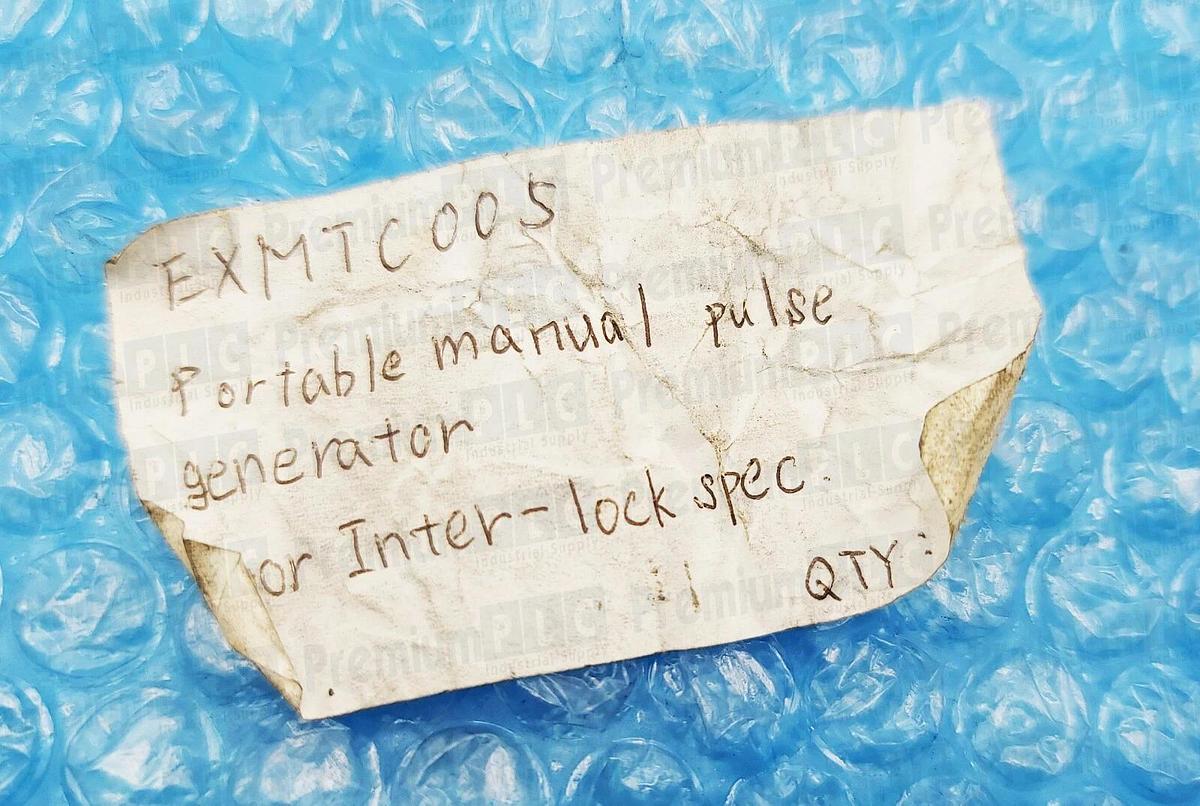 EXMTC005
Portable manual pulse
generator
or Inter-lock spec.
QTY:
Premium PLC
Industrial Supply